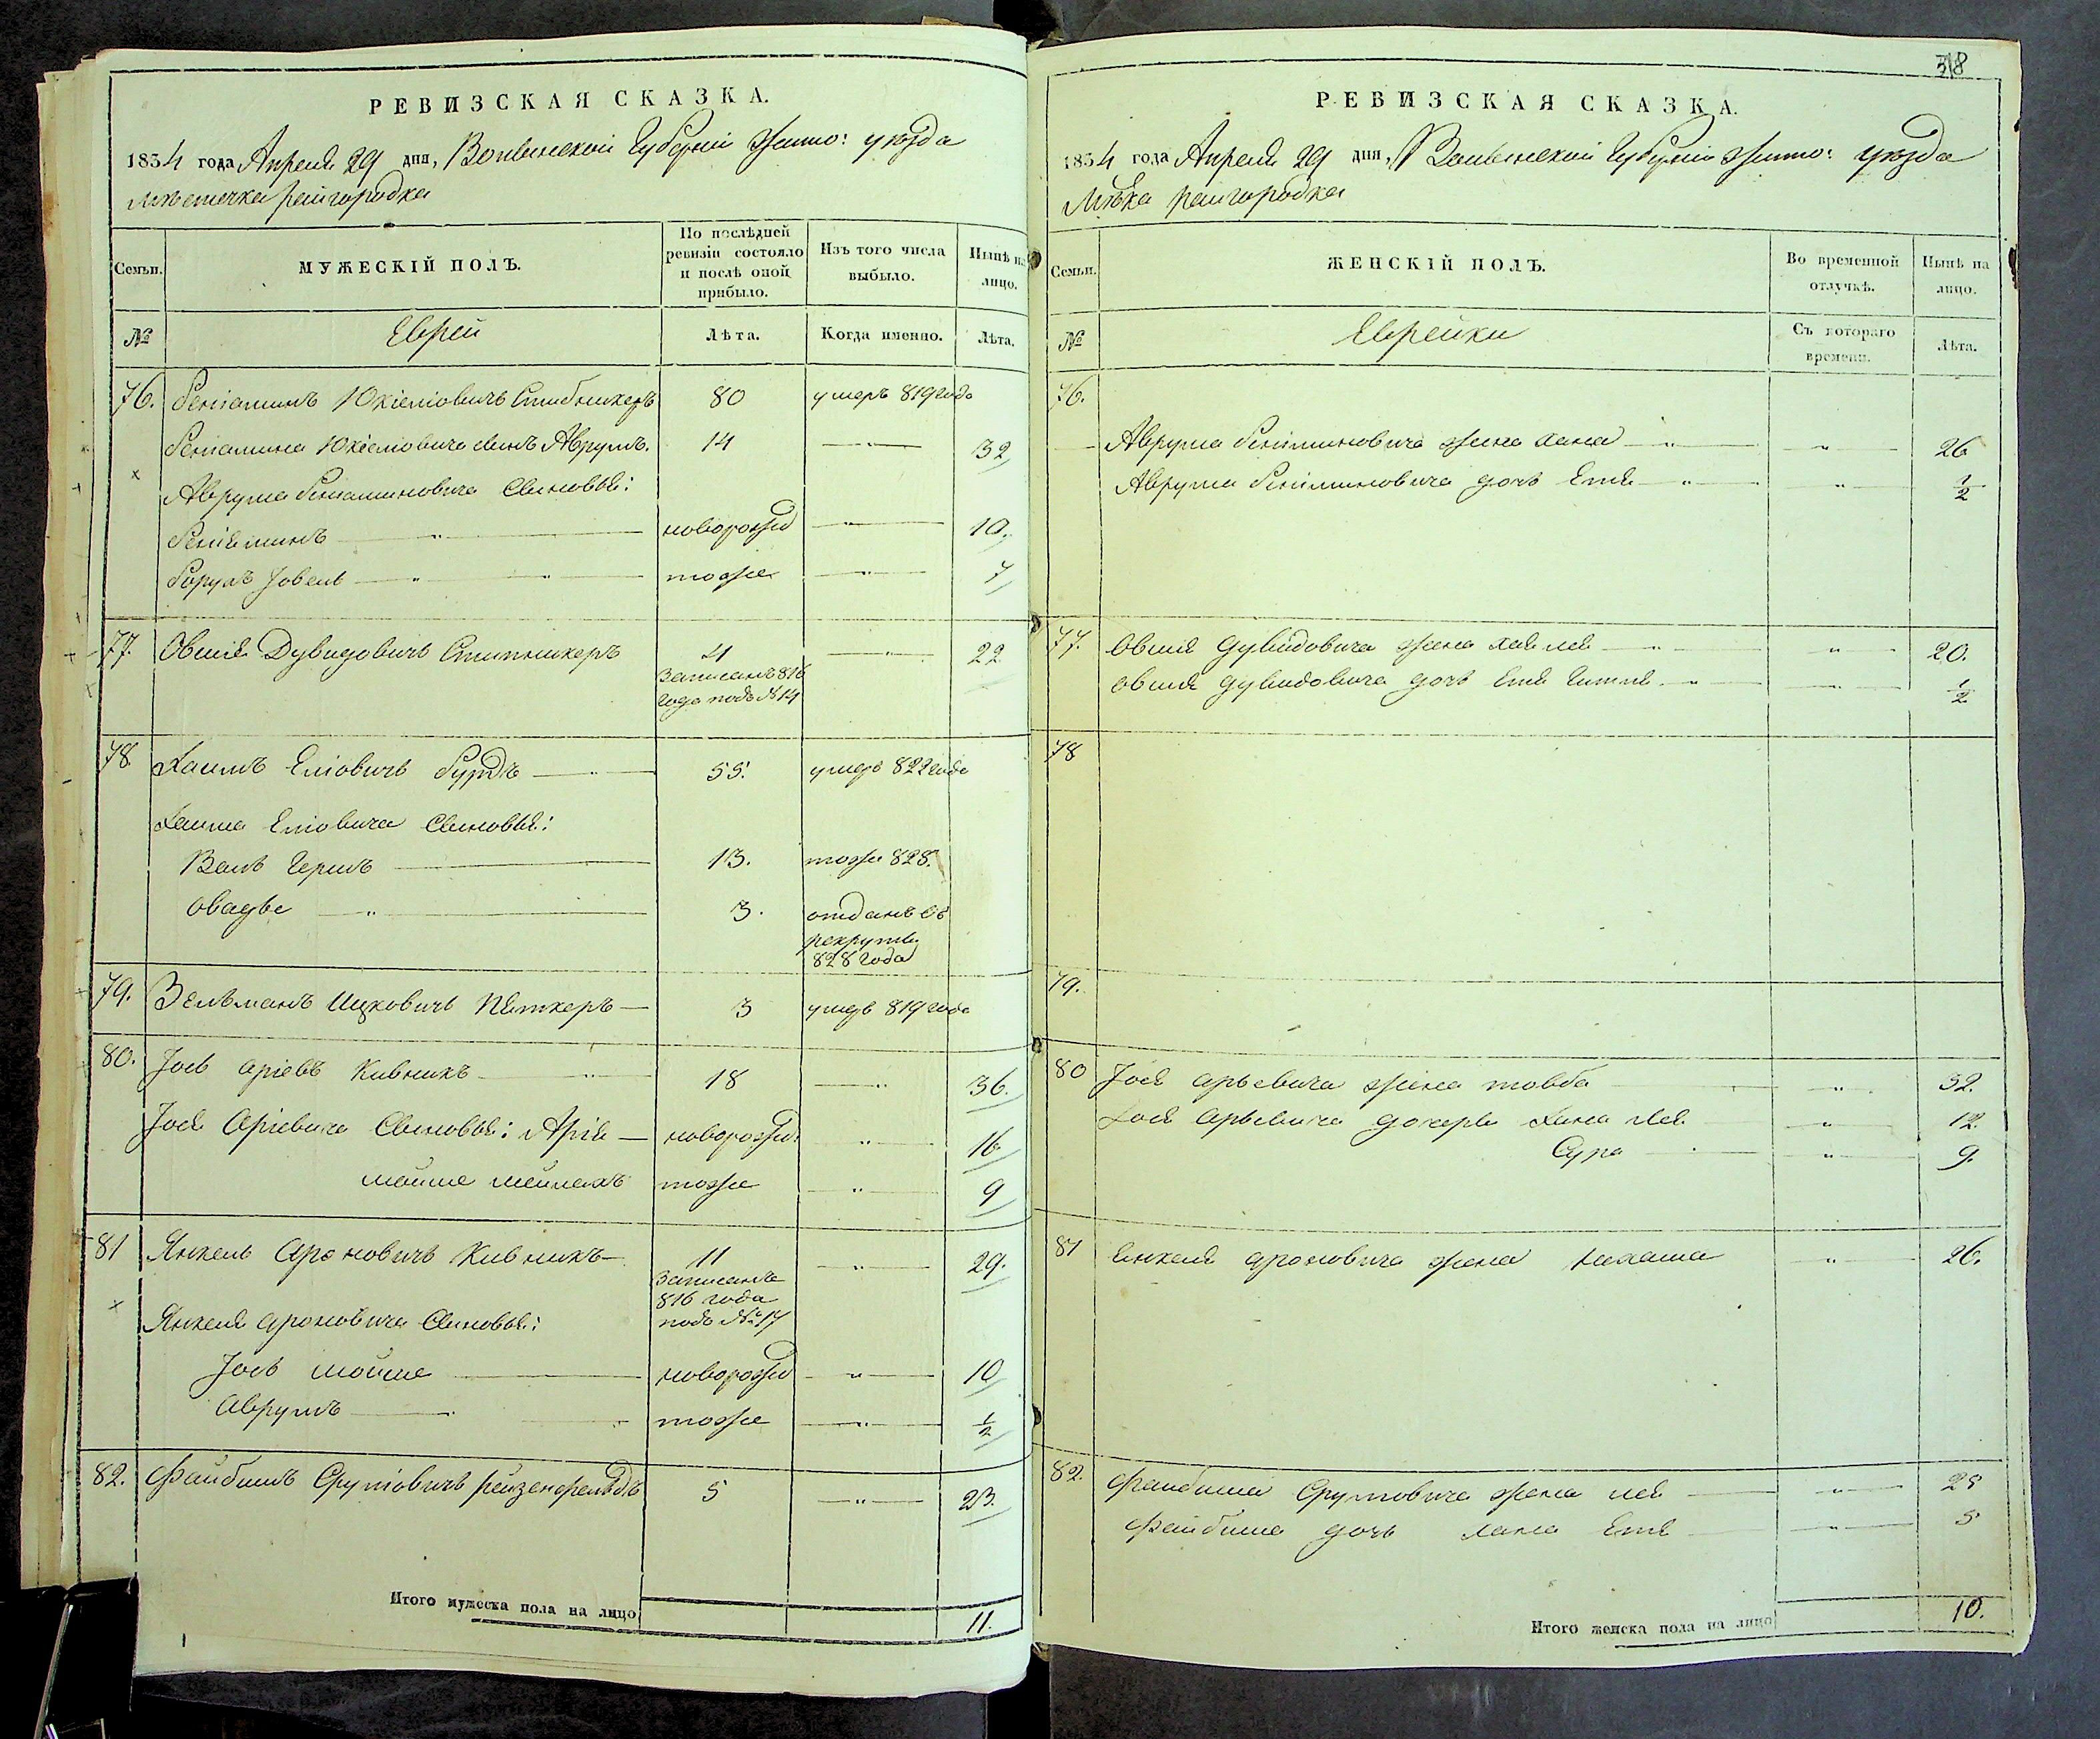 РЕВИЗСКАЯ СКАЗКА.
1834 года Апреля 29 дня, Волынской Губерніи Жито: уезда
мѣстечка Райгородка
Семьи.
МУЖЕСКІЙ ПОЛЪ.
По послѣдней ревизіи состояло и послѣ оной прибыло.
Изъ того числа выбыло.
Нынѣ на лицо.
№
Еврей
Лѣта.
Когда именно.
Лѣта.
76. Беніаминъ Юкіеліовичъ 80 умеръ 819 года
Беніамина Юкіеліовича сынъ Аврумъ. 14 — " — 32
Аврума Беніаминовича Сыновья:
Беніяминъ — " — новорожд — " — 10.
Борухъ Іовель — " — " — тоже — " — 7
77. Овшія Дувидовичъ 4 — " — 22
записанъ 816
года подъ № 14
78 Хаимъ Еліовичъ Бурдъ — " — 55. умеръ 822 года
Хаима Еліовича Сыновья:
Вольъ Гершъ — 13. тоже 828.
Овадье — " — 3. отданъ въ
рекруты
828 года
79. Зельманъ Ицковичъ — 3 умеръ 819 года
80. Іось Аріевъ Кивникъ — " — 18 — " — 36.
Іося Аріевича Сыновья: Арія — новорожд: — " — 16
Мойше Мейлахъ тоже — " — 9
81 Янкель Ароновичъ Кивникъ — 11 — " — 29.
записанъ
816 года
подъ № 17
Янкеля Ароновича Сыновья:
Іось Мойше — новорожд — " — 10
Аврумъ — тоже — " — 1/2
82. Файбишъ Сруліовичъ Рейзенфельдъ 5 — " — 23.
Итого мужеска пола на лицо 11.
318
РЕВИЗСКАЯ СКАЗКА.
1834 года Апреля 29 дня, Волынской Губерніи Жито: уезда
Мѣвка Райгородка
Семьи.
ЖЕНСКІЙ ПОЛЪ.
Во временной отлучкѣ.
Нынѣ на лицо.
№
Еврейки
Съ котораго времени.
Лѣта.
76.
Аврума Беніминовича жена Хана — " — " — 26
Аврума Беніминовича дочь Етя — " — " — 1/2
77. Овшія Дувидовича жена Хая Лея — " — " — 20.
Овшія Дувидовича дочь Етя Гитля — " — " — 1/2
78
79.
80 Іося Арьевича жена Товба — " — 32.
Іося Арьевича дочери Хана Лея — " — 12.
Сура — " — 9.
81 Янкеля Ароновича жена Нехама — " — 26.
82. Файбиша Сруловича жена Лея — " — 25
Файбиша дочь Хана Етя — " — 5
Итого женска пола на лицо 10.